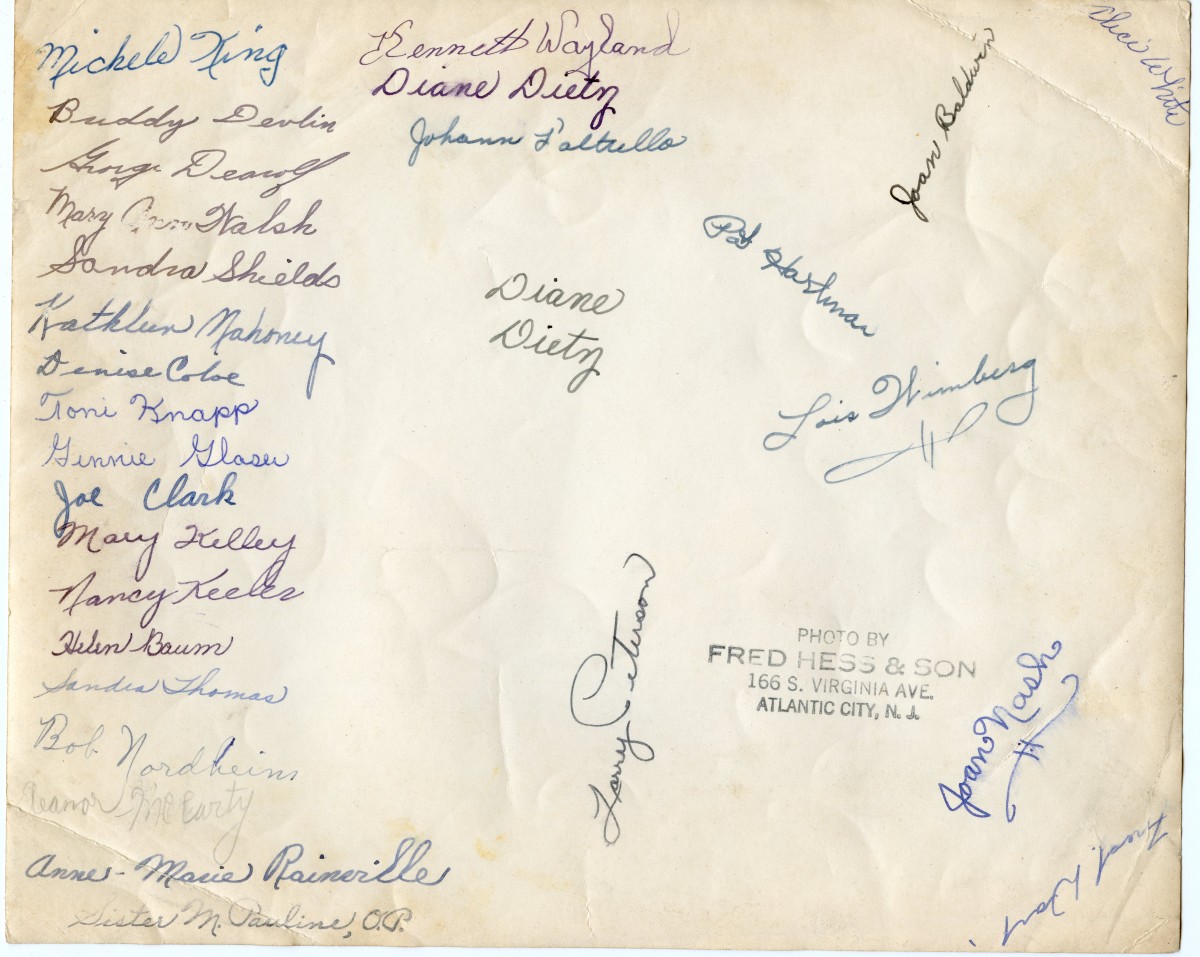 Michele King
Buddy Devlin
George Dearolf
Mary Ann Walsh
Sandra Shields
Kathleen Mahoney
Denise Coloe
Toni Knapp
Ginnie Glaser
Joe Clark
Mary Kelley
Nancy Keeler
Helen Baum
Sandra Thomas
Bob Nordheim
Eleanor McCarty
Anne-Marie Rainville
Sister M. Pauline, O.P.
Kenneth Wayland
Diane Dietz
Johann Faltrello
Diane
Dietz
Larry Peterson
Joan Baldwin
White
Pat Hartman
Lois Wimberg
PHOTO BY
FRED HESS & SON
166 S. VIRGINIA AVE.
ATLANTIC CITY, N. J.
Joan Nash